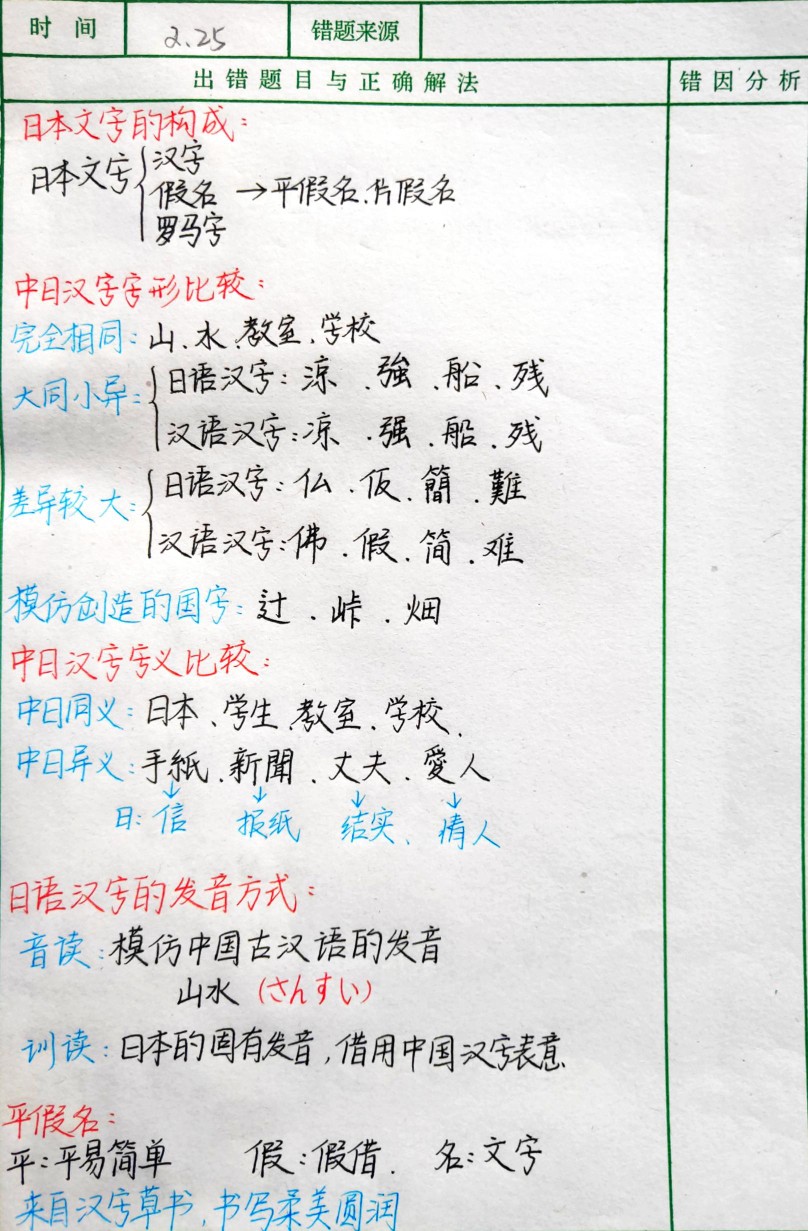 时 间 2.25 错题来源
出错题目与正确解法 错因分析
日本文字的构成:
日本文字{汉字
假名 →平假名、片假名
罗马字
中日汉字字形比较:
完全相同: 山、水、教室、学校
大同小异:{日语汉字: 涼、強、船、残
汉语汉字: 凉、强、船、残
差异较大:{日语汉字: 仏、仮、簡、難
汉语汉字: 佛、假、简、难
模仿创造的国字: 辻、峠、畑
中日汉字字义比较:
中日同义: 日本、学生、教室、学校、
中日异义: 手紙、新聞、丈夫、愛人
↓ ↓ ↓ ↓
日: 信 报纸 结实、情人
日语汉字的发音方式:
音读: 模仿中国古汉语的发音
山水 (さんすい)
训读: 日本的固有发音,借用中国汉字表意
平假名:
平: 平易简单 假: 假借. 名: 文字
来自汉字草书,书写柔美圆润